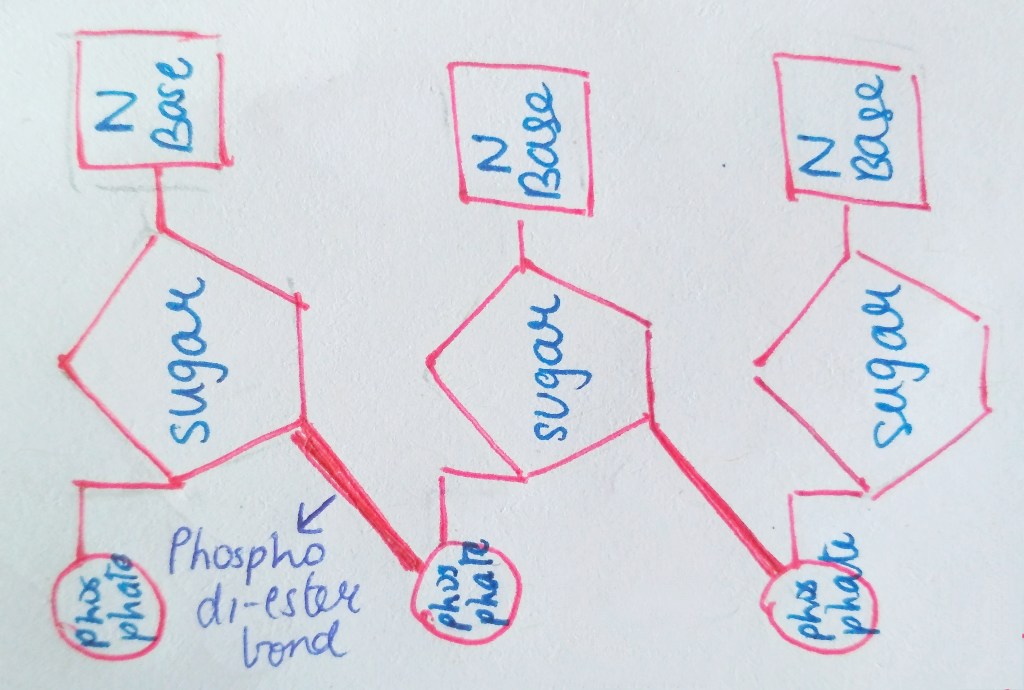 N
Base
N
Base
N
Base
sugar
sugar
sugar
phos
phate
Phospho
di-ester
bond
phos
phate
phos
phate